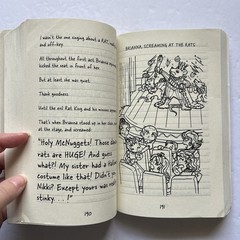 I wasn't the one singing about a RAT
and off-key.
All throughout the first act Brianna
kicked the seat in front of her.
But at least she was quiet.
Thank goodness.
Until the evil Rat King and his
That's when Brianna stood up in her
stage, and screamed.
"Holy McNuggets! Those
rats are HUGE! And guess
what?! My sister had a
costume like that! Didn't you
Nikki? Except yours was
stinky. . . !"
190
BRIANNA, SCREAMING AT THE RATS
191